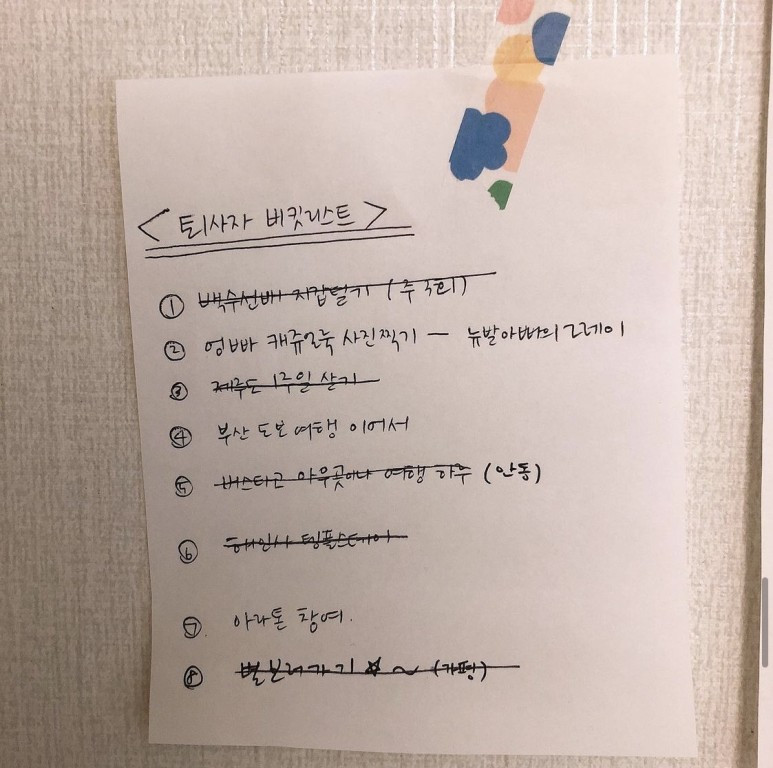 <퇴사자 버킷리스트>
① 백수선배 지갑털기 (주 3회)
② 엉빠 캐쥬얼룩 사진찍기 — 뉴발아빠의 그레이
③ 제주도 1주일 살기
④ 부산 도보여행 이어서
⑤ 버스타고 아무곳이나 여행 하루 (안동)
⑥ 해인사 템플스테이
⑦ 마라톤 참여.
⑧ 별보러가기 ☆ ~ (가평)